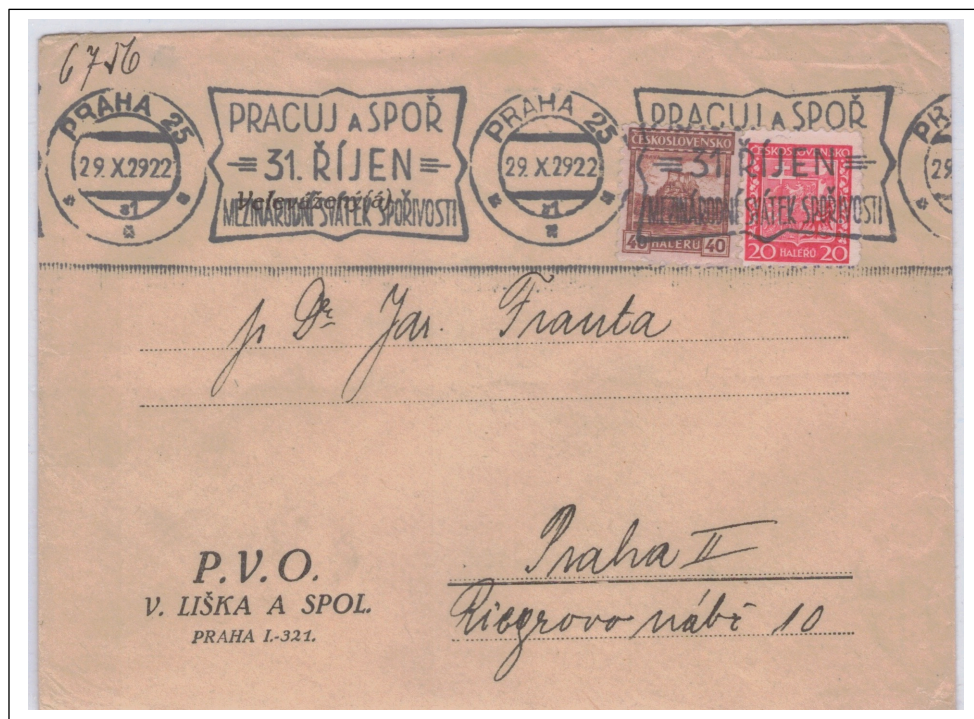 6756
PRAHA 25
29.X.2922
PRACUJ A SPOŘ
31. ŘÍJEN
MEZINÁRODNÍ SVÁTEK SPOŘIVOSTI
Velevážený(á)
PRAHA 25
29.X.2922
PRACUJ A SPOŘ
31. ŘÍJEN
MEZINÁRODNÍ SVÁTEK SPOŘIVOSTI
ČESKOSLOVENSKO
40 HALÉŘŮ 40
ČESKOSLOVENSKO
20 HALÉŘŮ 20
p Dr Jar. Franta
Praha II
Riegrovo nábř 10
P.V.O.
V. LIŠKA A SPOL.
PRAHA I.-321.